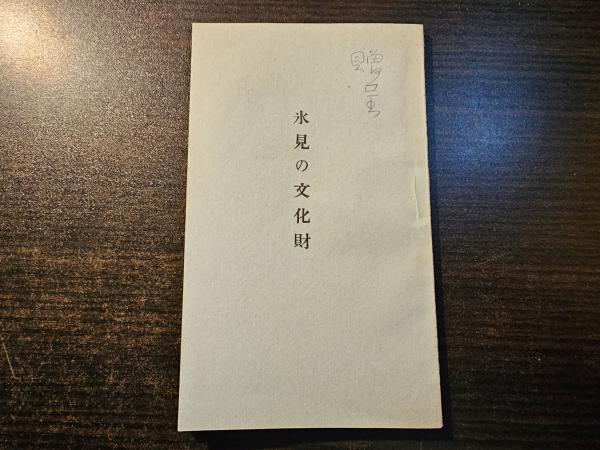 贈呈
氷見の文化財